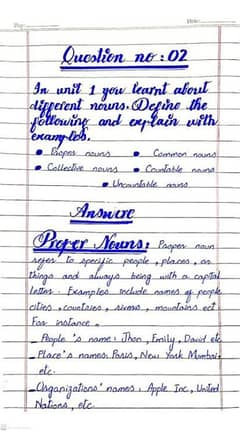 Question no: 02
In unit 1 you learnt about
different nouns. Define the
following and explain with
examples.
• Proper nouns • Common nouns
• Collective nouns • Countable nouns
• Uncountable nouns
Answre
Proper Nouns: Proper noun
refer to specific people, places, or
things and always being with a capital
letter. Examples include names of people
cities, countries, rivers, mountains ect
For instance.
_ People 's name: Jhon, Emily, David etc
_ Place's names: Paris, New York Mumbai,
etc.
_ Organizations' names: Apple Inc, United
Nations, etc